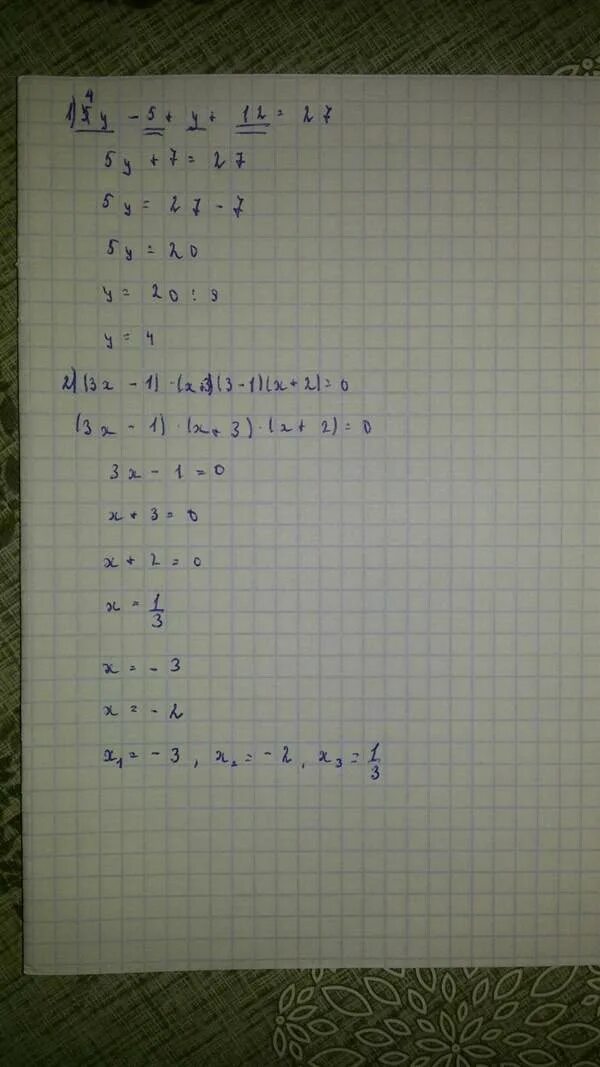 1) 4y - 5 + y + 12 = 27
5y + 7 = 27
5y = 27 - 7
5y = 20
y = 20 : 9
y = 4
2) (3x - 1) · (x+3) (3-1)(x+2) = 0
(3x - 1) · (x + 3) · (x + 2) = 0
3x - 1 = 0
x + 3 = 0
x + 2 = 0
x = 1/3
x = - 3
x = - 2
x₁ = - 3 , x₂ = - 2 , x₃ = 1/3